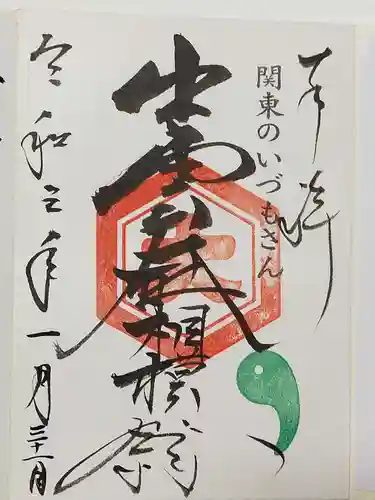 奉拝
関東のいづもさん
出雲相模
令和三年一月三十一日